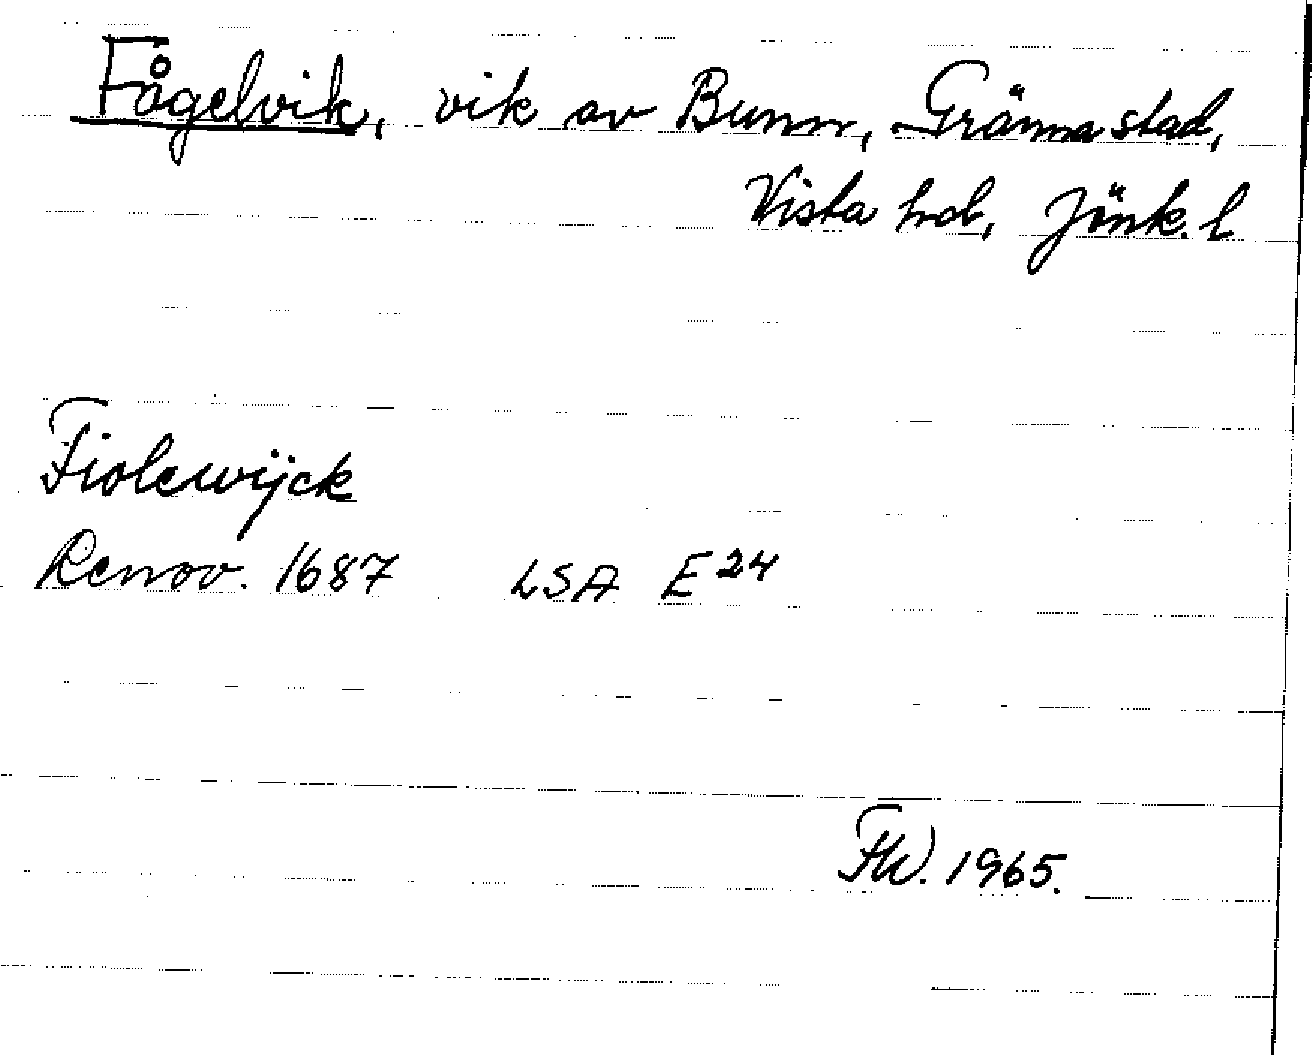 Fågelvik, vik av Bunn, Gränna stad,
Vista hd, Jönk. l
Fiolewijck
Renov. 1687 LSA E 24
1965.